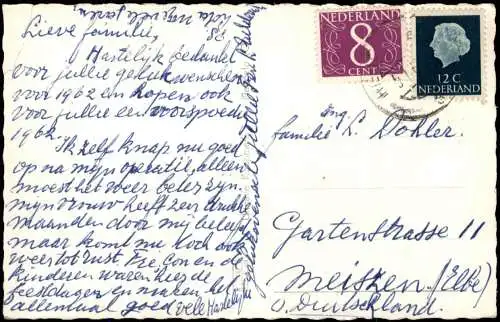 Lieve familie,
Hartelijk bedankt
voor jullie gelukwenschen
voor 1962 en hopen ook
voor jullie een voorspoedig
1962.
Ik zelf knap nu goed
op na mijn operatie, alleen
moest het weer beter zijn.
mijn vrouw heeft zeer drukke
maanden door mij beleefd
maar komt nu toch ook
weer tot rust. en de
kinderen waren hier de
feestdagen en maken het
allemaal goed vele Hartelijke
NEDERLAND
8
CENT
12 C
NEDERLAND
Ing.
Familie L. Dohler.
Gartenstrasse 11
Meiszen (Elbe)
O. Deutschland.